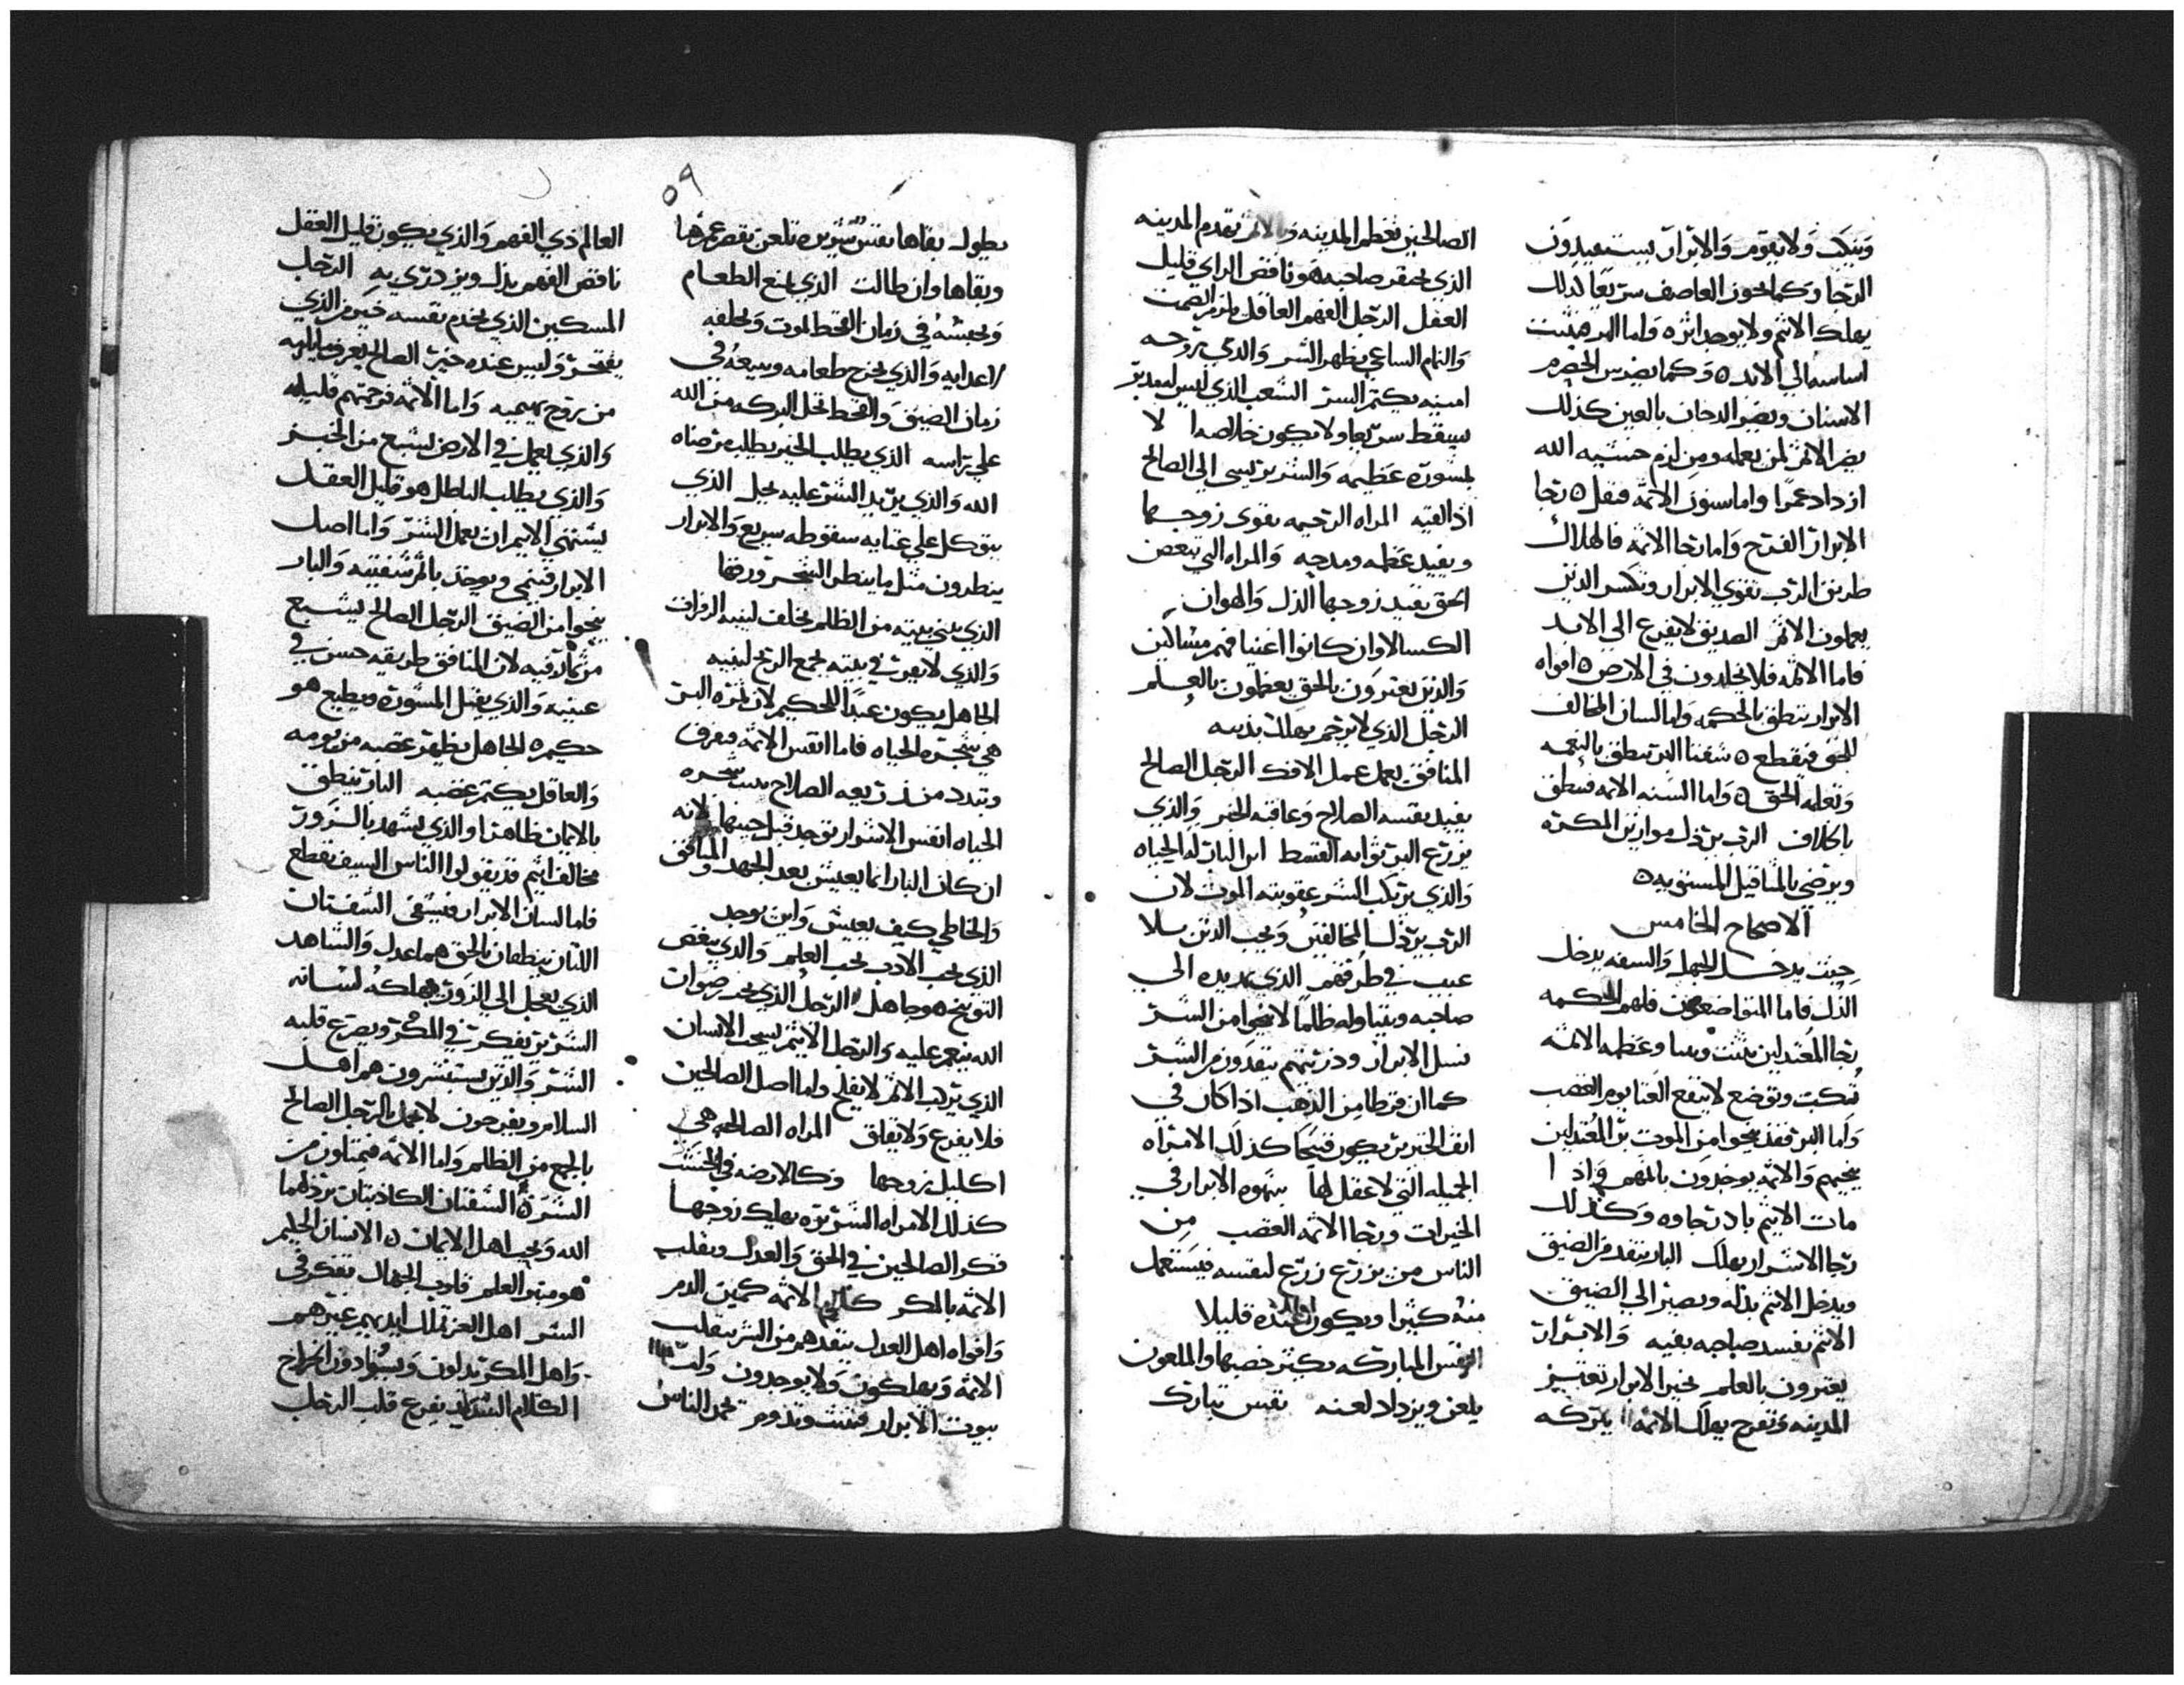 وتبكت ولا يقوم والابرار يستفيدون
الرجا وكما يجوز العاصف سريعا كذلك
يهلك الاثم ولا يوجد اثره واما البر فيثبت
اساسه الي الابد ٥ وكما يضرس الحصرم
الاسنان ويضر الدخان بالعين كذلك
يضر الاثم لمن يعمله ومن لزم خشيه الله
ازداد عمرا واما سنون الاثمه فتقل ٥ رجا
الابرار الفرح واما رجا الاثمه فالهلاك
طريق الرب تقوي الابرار وتكسر الذين
يعملون الاثم الصديق لا يفزع الي الابد
فاما الاثمه فلا يخلدون في الارض ٥ افواه
الابرار تنطق بالحكمه واما لسان المخالف
للحق فيقطع ٥ شفتا البر تنطق بالنعمه
وتعلم الحق ٥ واما السنه الاثمه فتنطق
باخلاف الرب يرذل موازين المكر
ويرضي بالمثاقيل المستويه ٥
الاصحاح الخامس
حيث يدخل الجهل والسفه يدخل
الذل فاما المتواضعون فلهم الحكمه
رجا المعتدلين يثبت وعظمه الاثمه
تنكبت وتوضع لا ينفع الغنا يوم الغضب
واما البر فقد ينجوا من الموت بر المعتدلين
ينجيهم والاثمه يوخذون باثمهم واذا
مات الاثيم باد رجاوه وكذلك
رجا الاشرار يهلك البار ينقذ من الضيق
ويدخل الاثيم بدله ويصير الي الضيق
الاثم يفسد صاحبه بفيه والابرار
يعتزون بالعلم بخير الابرار تعتز
المدينه وتفرح بهلاك الاثمه بتركه
الصالحين تعظم المدينه وبالاثم تهدم المدينه
الذي يحقر صاحبه هو ناقص الراي قليل
العقل الرجل الفهم العاقل يلزم الصمت
والنمام الساعي يظهر السر والذي روحه
امينه يكتم السر الشعب الذي ليس له مدبر
يسقط سريعا ولا يكون خلاصه الا
بمشوره عظيمه والشرير يسي الي الصالح
اذا لقيه المراه الرحيمه تقوي زوجها
وتفيد عظمه ومدحه والمراه التي تبغض
الحق تفيد زوجها الذل والهوان
الكسالا وان كانوا اغنيا فهم مساكين
والذين يعترون بالحق يعظمون بالعلم
الرجل الذي لا يرحم يهلك بذنبه
المنافق يعمل عمل الافك الرجل الصالح
يفيد نفسه الصلاح وعاقبه الخير والذي
يزرع البر ثوابه القسط ابن البار له الحياه
والذي يرتكب الشر عقوبته الموت لان
الرب يرذل المخالفين ويحب الذين بلا
عيب في طرقهم الذي يمد يده الي
صاحبه ويتناوله ظالما لا ينجوا من الشر
نسل الابرار وذريتهم ينقذون من الشر
كما ان قرطا من الذهب اذا كان في
انف الخنزير يكون قبيحا كذلك الامراه
الجميله التي لا عقل لها شهوه الابرار في
الخيرات ورجا الاثمه الغضب من
الناس من يزرع زرع لنفسه فيستعمل
منه كثيرا ويكون عنده قليلا
النفس المباركه يكثر خصبها والملعون
يلعن ويزداد لعنه نفس تبارك
٥٩
يطول بقاها نفس شريره تلعن نقص عمرها
وبقاها وان طالت الذي يمنع الطعام
ويحبسه في زمان القحط لموت ويخلفه
لاعدايه والذي يخرج طعامه ويبيعه في
زمان الضيق والقحط تحل البركه من الله
علي راسه الذي يطلب الخير يطلب مرضاه
الله والذي يريد الشر عليه يحل الذي
يتوكل علي غنايه سقوطه سريع والابرار
ينظرون مثل ما ينظر الشجر ورقها
الذي يبني بيته من الظلم يخلف لبنيه الزفرات
والذي لا يقرت في بيته يجمع الريح لبنيه
الجاهل يكون عبدا للحكيم لان ثمره البر
هي شجره الحياه فاما انفس الاثمه فتفرق
وتبدد من زريعه الصلاح تنبت شجره
الحياه انفس الاشرار توخذ قبل حينها لانه
ان كان البار انما يعيش بعد الجهد والمنافق
والخاطي كيف يعيش واين يوجد
الذي يحب الادب يحب العلم والذي يبغض
التوبيخ هو جاهل الرجل الذي يجد رضوان
الله ينعم عليه والرجل الاثيم يسبحب الانسان
الذي يركب الاثم لا يفلح واما اصل الصالحين
فلا يفزع ولا يقلق المراه الصالحه هي
اكليل زوجها وكالارضه في الخشب
كذلك الامراه الشريره تهلك زوجها
فكر الصالحين في الحق والعدل وتقلب
الاثمه بالمكر كلام الاثمه كمين الدم
وافواه اهل العدل ينقذهم من الشر تنقلب
الاثمه ويهلكون ولا يوجدون واما
بيوت الابرار فتثبت وتدوم تحمد الناس
العالم ذي الفهم والذي يكون قليل العقل
ناقص الفهم يذل ويزدري به الرجل
المسكين الذي يخدم نفسه خير من الذي
يفتخر وليس عنده خير الصالح يعرف
من يروح بهيمه واما الاثمه فرحمتهم قليله
والذي يعمل في الارض يشبع من الخبز
والذي يطلب الباطل هو قليل العقل
يشتهي الاثيم ان يعمل الشر واما اصل
الابرار فينمي ويوخذ باثم شفتيه والبار
ينجوا من الضيق الرجل الصالح يشبع
من ثمار فيه لان المنافق طريقه حسن في
عينيه والذي يقبل المشوره ويطيع هو
حكيم ٥ الجاهل يظهر غضبه من يومه
والعاقل يكتم غضبه البار ينطق
بالايمان ظاهرا والذي يشهد بالزور
مخالف اثيم قد يقولوا الناس السيف تقطع
فاما لسان الابرار فيشفي الشفتان
اللتان ينطقان بالحق هما عدل والشاهد
الذي يعجل الي الزور يهلكه لسانه
الشرير يتفكر في المكر ويصرع قلبه
الشر والذين يستشيرون هم اهل
السلام ويفرحون لا يجمل بالرجل الصالح
بالجمع من الظلم واما الاثمه فيمتلون من
الشر ٥ الشفتان الكاذبتان يرذلهما
الله ويحب اهل الايمان ٥ الانسان الحليم
هو منبر العلم قلوب الجهال تفكر في
الشر اهل العزه تملك ايديهم غيرهم
واهل المكر يذلون ويستودون الخراج
الكلام الشديد يفزع قلب الرجل